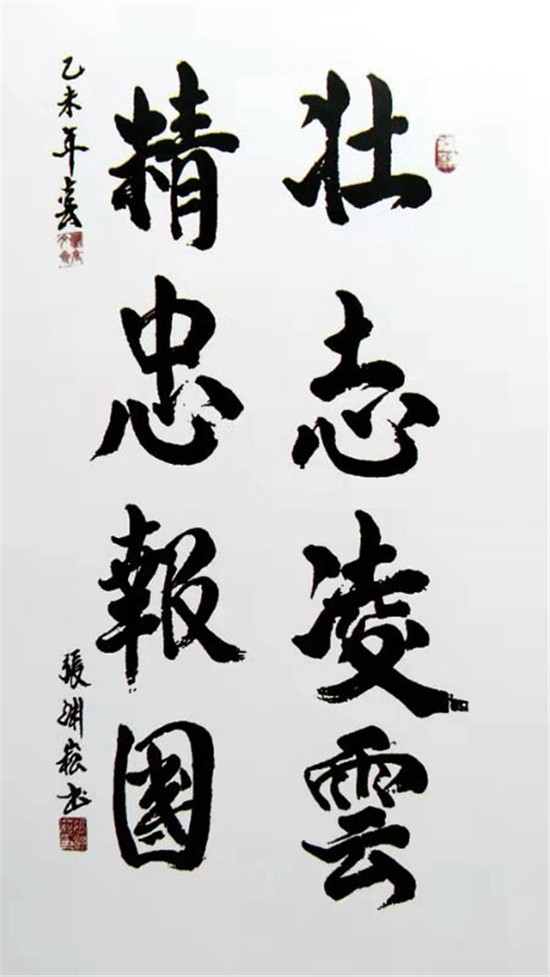 壮志凌雲
精忠報國
乙未年
張渊崧书